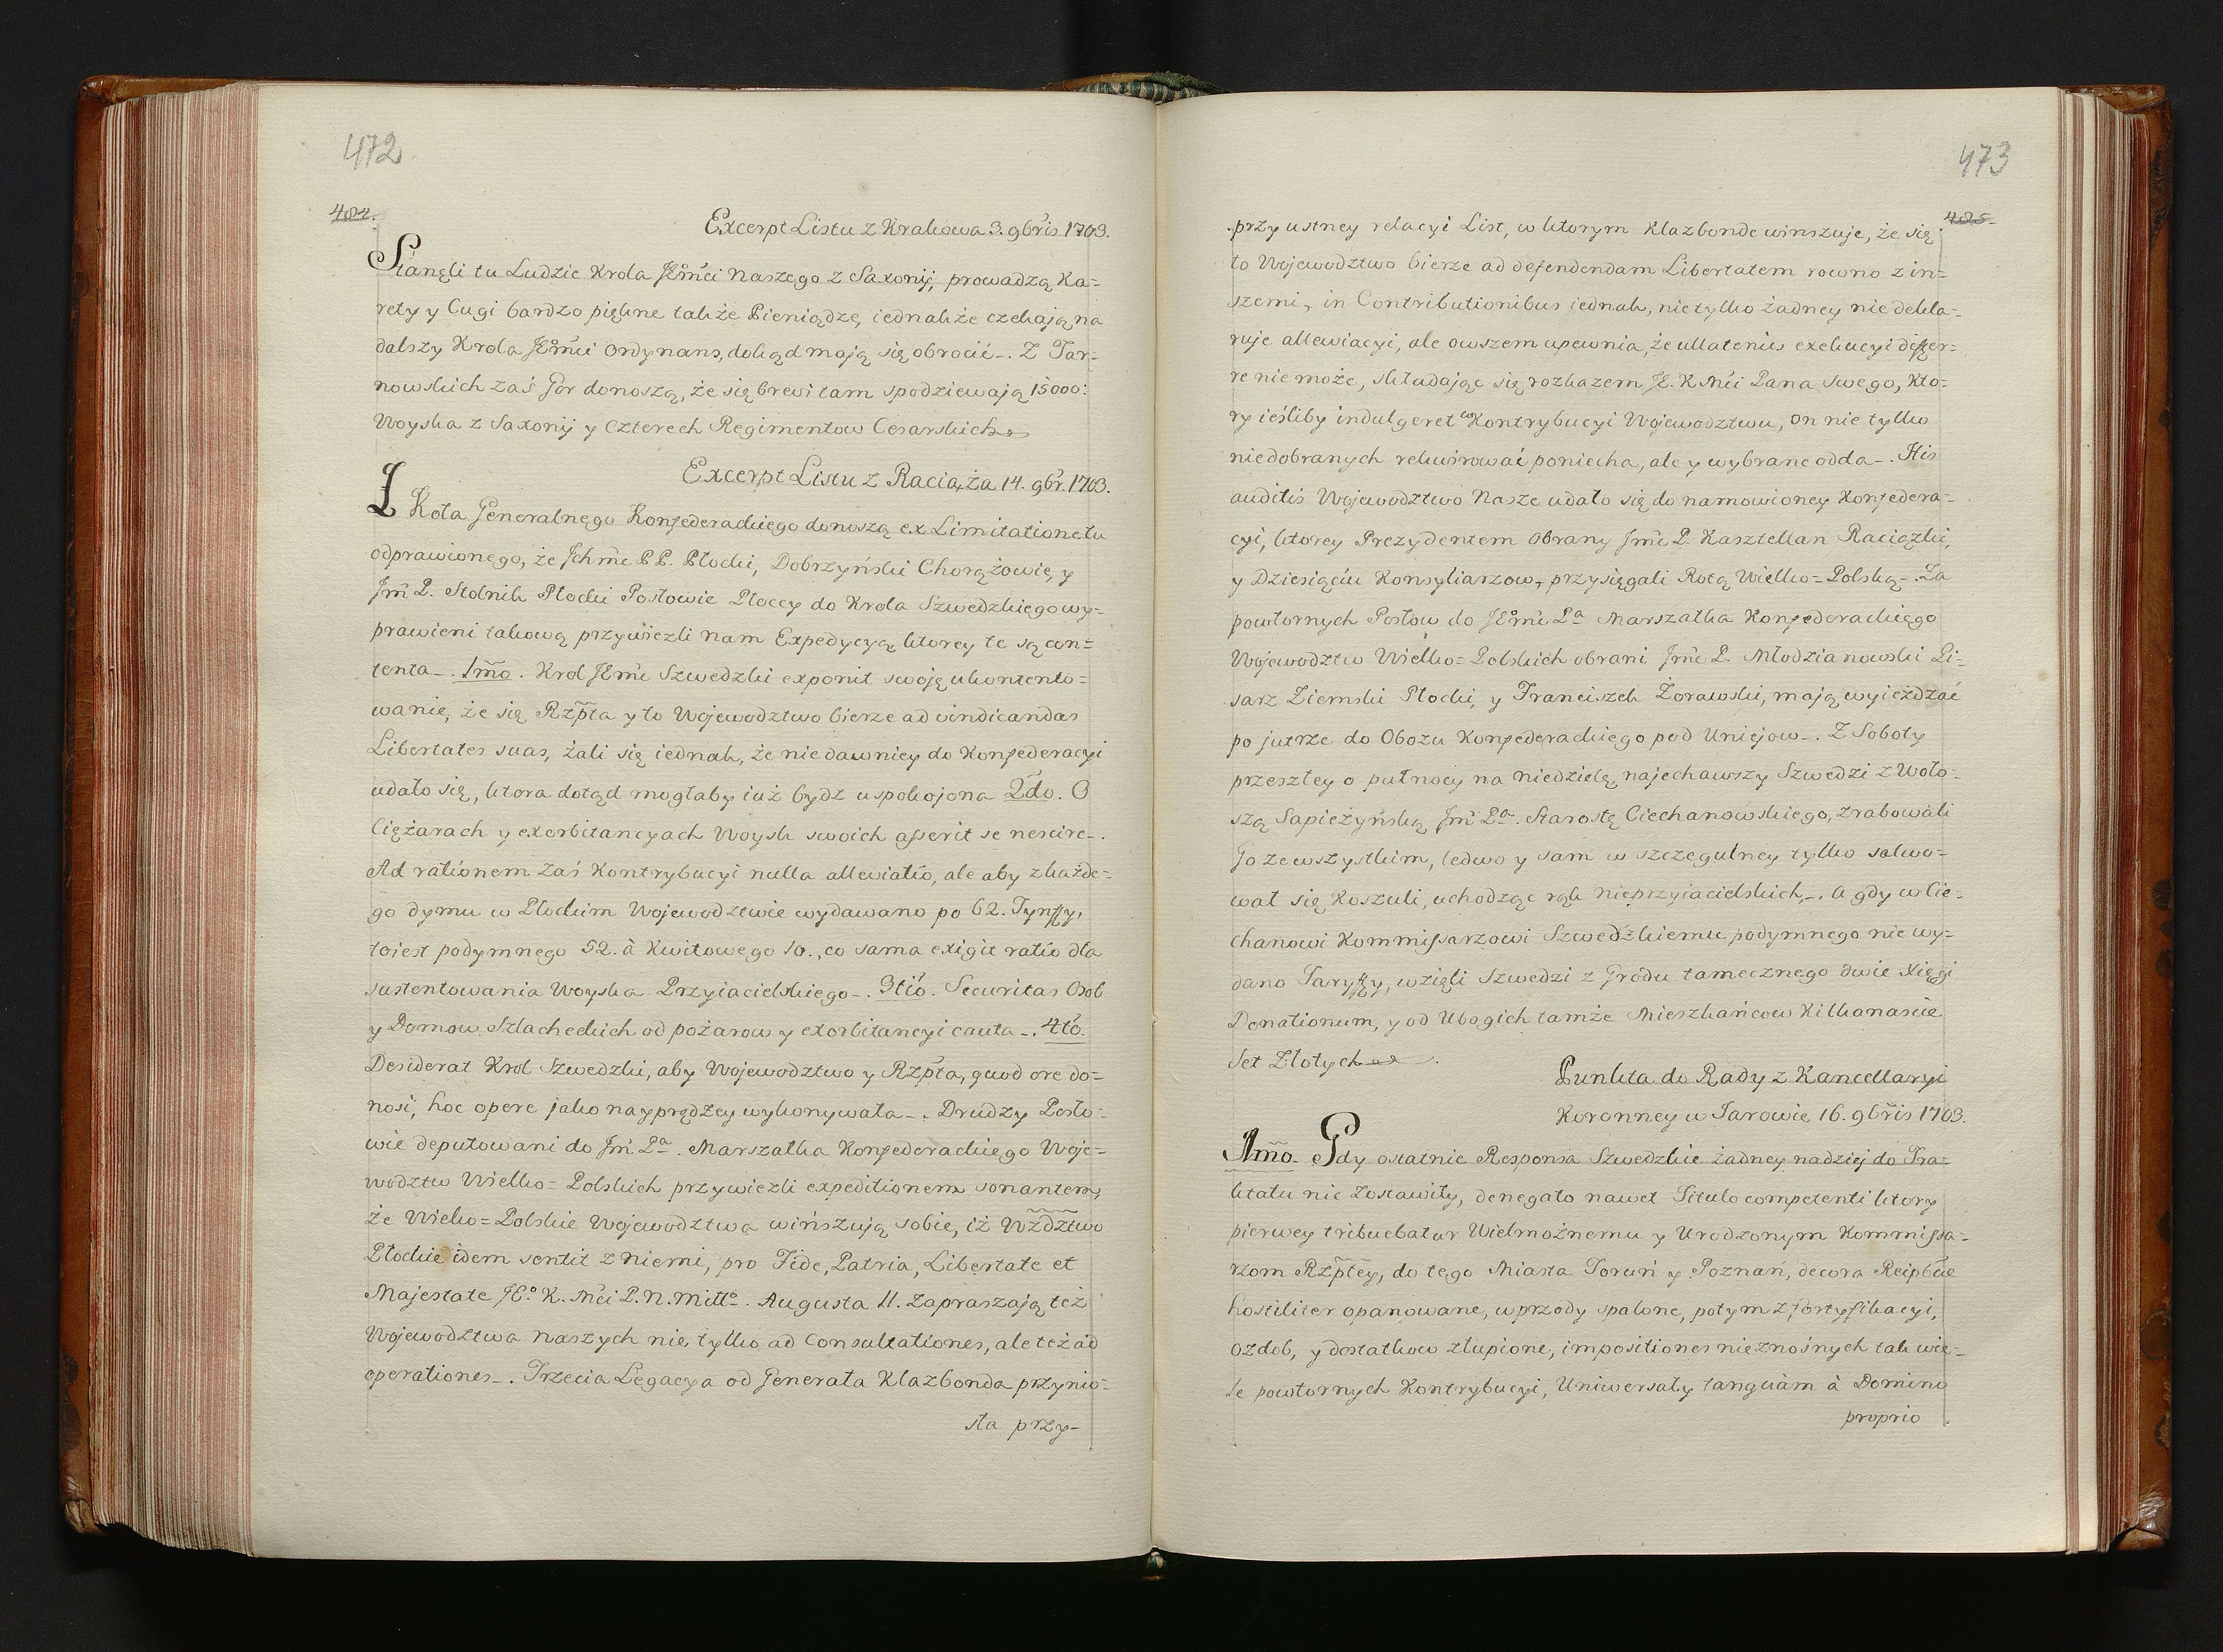 472
484.
Excerpt Listu z Krakowa 3. 9bris 1703.
Stanęli tu Ludzie Krola JEo̊mći Naszego z Saxonij, prowadzą Ka=
rety y Cugi bardzo piękne także Pieniądze, iednakże czekają na
dalszy Krola JEo̊mći Ordynans, dokąd mają się obrocić_. Z Tar=
nowskich zaś Gor donoszą, że się brevi tam spodziewają 15000:
Woyska z Saxonij y czterech Regimentow Cesarskich
Excerpt Listu z Raciąża 14. 9br. 1703.
Z Koła Generalnego Konfederackiego donoszą ex Limitatione tu
odprawionego, że Ichmć PP. Płocki, Dobrzyński Chorążowie, y
Jm̃ P. Stolnik Płocki Posłowie Płoccy do Krola Szwedzkiego wy=
prawieni takową przywiezli nam Expedycyą ktorey te są con=
tenta_. 1mo. Krol JEmć Szwedzki exponit swoję ukontento=
wanie, że się Rzpta y to Wojewodztwo bierze ad vindicandas
Libertates suas, żali się iednak, że nie dawniey do Konfederacyi
udało się, ktora dotąd mogłaby iuż bydź uspokojona 2do. O
Ciężarach y exorbitancyach Woysk swoich asserit se nescire_.
Ad rationem zaś Kontrybucyi nulla alleviatio, ale aby z każde=
go dymu w Płockim Wojewodztwie wydawano po 62. Tynffy,
toiest podymnego 52. à Kwitowego 10., co sama exigit ratio dla
sustentowania Woyska Przyiacielskiego_. 3tio. Securitas Osob
y Domow Szlacheckich od pożarow y exorbitancyi cauta_. 4to.
Desiderat Krol Szwedzki, aby Wojewodztwo y Rzpta, quod ore do=
nosi, hoc opere jako nayprędzey wykonywała_. Drudzy Posło=
wie deputowani do Jm̃ Pa. Marszałka Konfederackiego Woje=
wodztw Wielko=Polskich przywiezli expeditionem sonantem,
że Wielko=Polskie Wojewodztwa winszują sobie, iż Wzdztwo
Płockie idem sentit z niemi, pro Fide, Patria, Libertate et
Majestate JEo. K. Mći P. N. Miłło. Augusta II. Zapraszają też
Wojewodztwa naszych nie tylko ad Consultationes, ale też ad
operationes_. Trzecia Legacya od Generała Klazbonda przynio=
sła przy-
473
485.
przy ustney relacyi List, w ktorym Klazbonde winszuje, że się
to Wojewodztwo bierze ad defendendam Libertatem rowno z in=
szemi, in Contributionibus iednak, nie tylko żadney nie dekla=
ruje allewiacyi, ale owszem upewnia, że ullatenus exekucyi differ=
re nie może, składając się rozkazem JE. K Mći Pana swego, kto=
ry ieśliby indulgeret co Kontrybucyi Wojewodztwu, on nie tylko
niedobranych rekwirować poniecha, ale y wybrane odda_. His
auditis Wojewodztwo Nasze udało się do namowioney Konfedera=
cyi, ktorey Prezydentem Obrany Jmć P. Kasztellan Raciązki,
y Dziesięciu Konsyliarzow, przysięgali Rotą Wielko=Polską_. Za
powtornych Posłow do JEo̊mć Pa Marszałka Konfederackiego
Wojewodztw Wielko=Polskich obrani Jmć P. Młodzianowski Pi=
sarz Ziemski Płocki, y Franciszek Żorawski, mają wyieżdzać
po jutrze do Obozu Konfederackiego pod Uniejow_. Z Soboty
przeszłey o pułnocy na niedzielę, najechawszy Szwedzi z Woło=
szą Sapieżyńską Jm̃ Pa. Starostę Ciechanowskiego, zrabowali
Go ze wszystkim, ledwo y sam w szczegulney tylko salwo=
wał się Koszuli, uchodząc rąk nieprzyiacielskich,_. a gdy w Cie=
chanowi Kommissarzowi Szwedzkiemu podymnego nie wy=
dano Taryffy, wzięli Szwedzi z Grodu tamecznego dwie Xięgi
Donationum, y od Ubogich tamże Mieszkańcow Kilkanascie
Set Złotych
Punkta do Rady z Kancellaryi
Koronney w Jarowie 16. 9bris 1703.
1mo. Gdy ostatnie Responsa Szwedzkie żadney nadziej do Tra=
ktatu nie zostawiły, denegato nawet Titulo competenti ktory
pierwey tribuebatur Wielmożnemu y Urodzonym Kommissa=
rzom Rzptey, do tego Miasta Toruń y Poznań, decora Reipbcae
hostiliter opanowane, w przody spalone, potym z fortyfikacyi,
ozdob, y dostatkow złupione, impositiones nieznośnych tak wie=
le powtornych Kontrybucyi, Uniwersały tanquàm à Domino
proprio